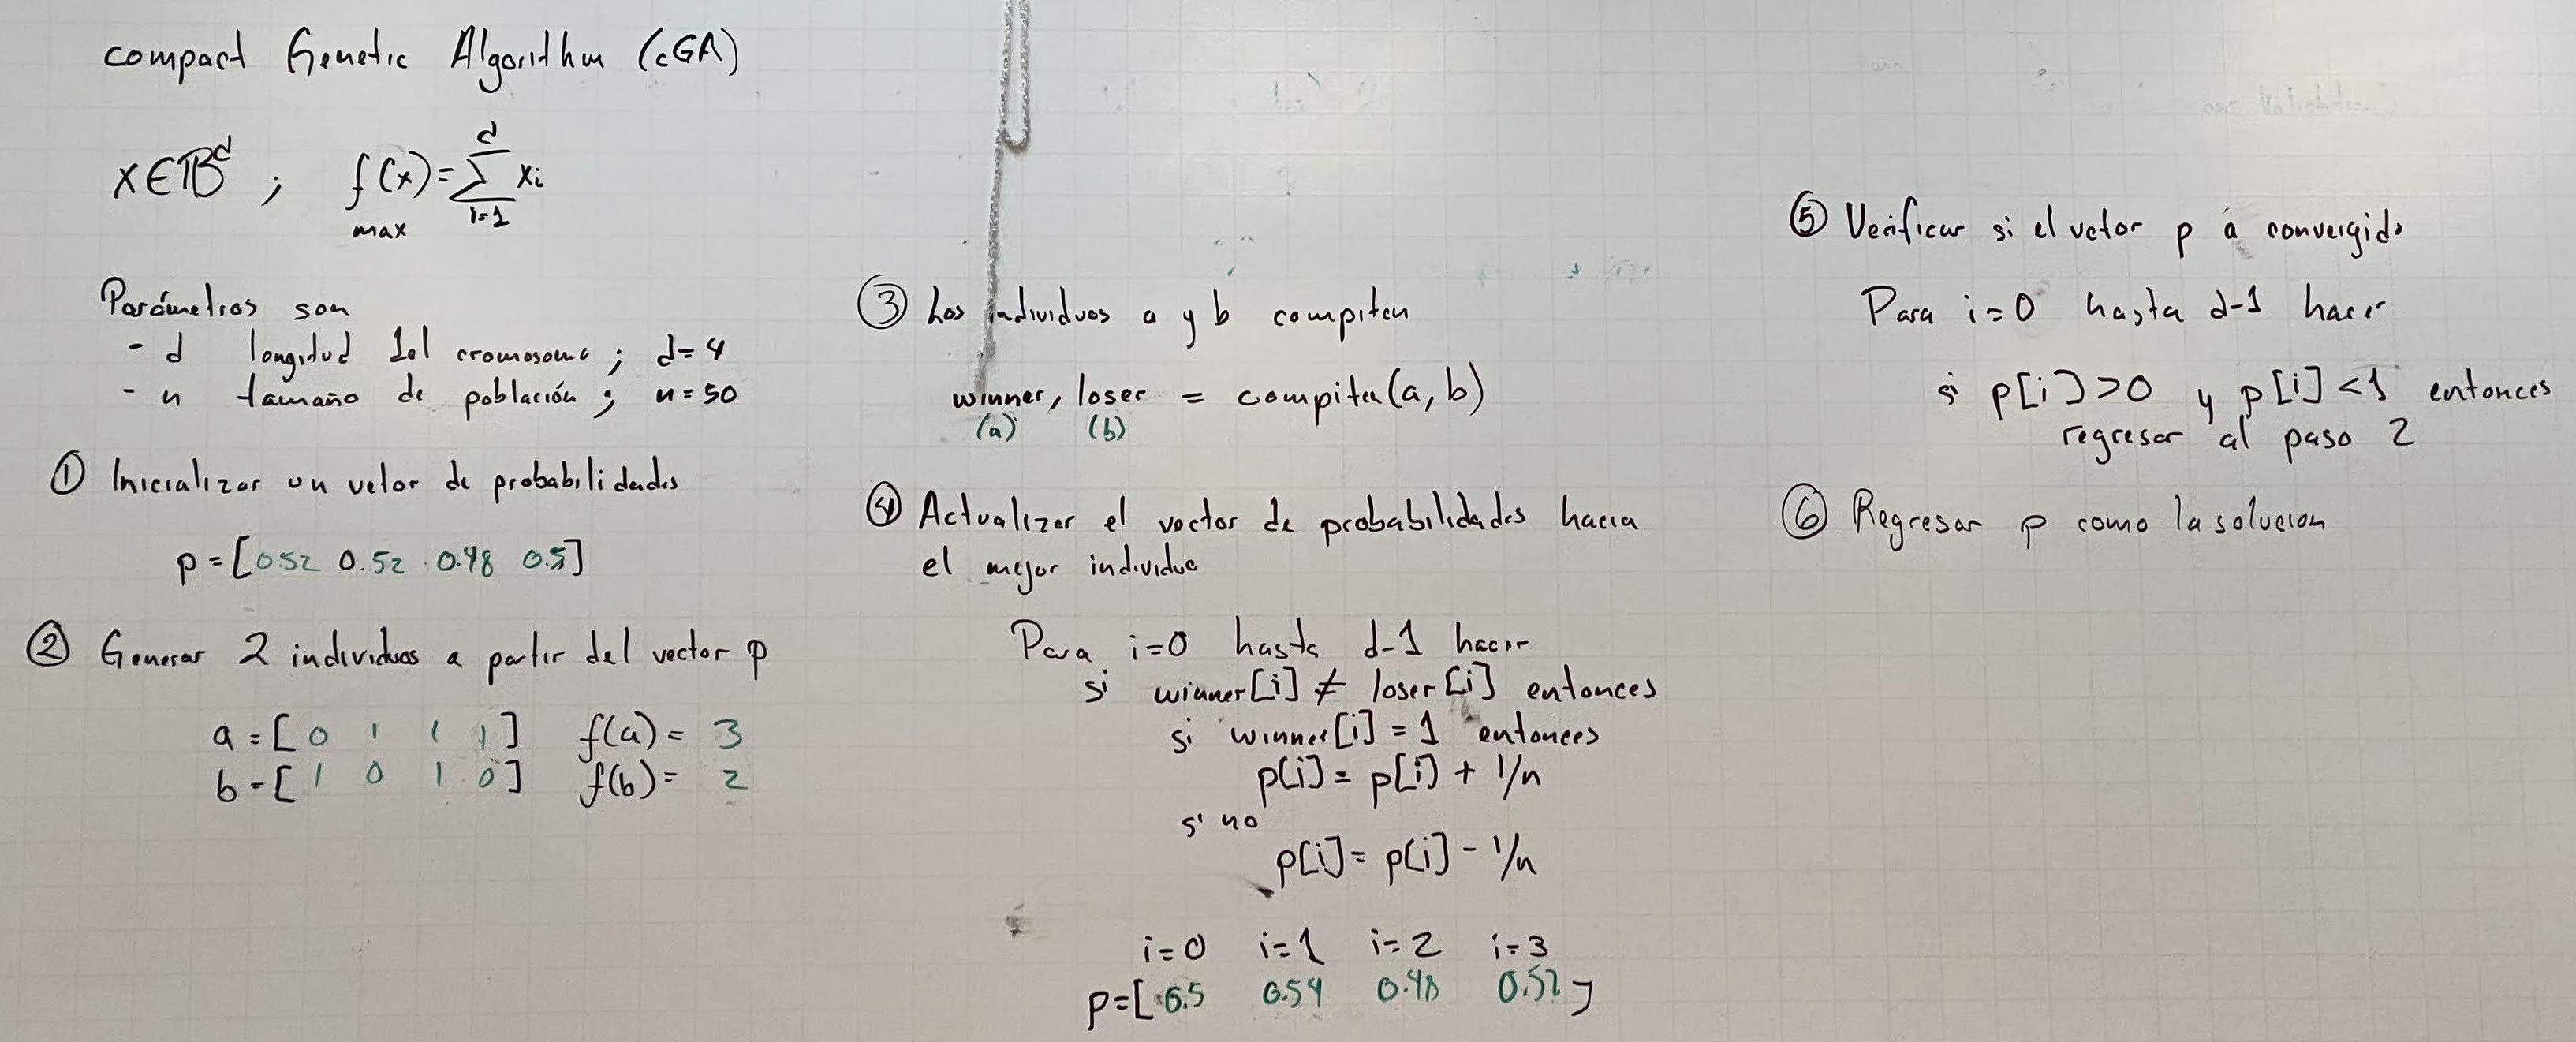 compact Genetic Algorithm (cGA)
x∈𝔹^d ; f(x)=∑_{i=1}^{d} xi
max
Parámetros son
- d longitud del cromosoma ; d=4
- n tamaño de población ; n=50
① Inicializar un vetor de probabilidades
p=[0.52 0.52 0.48 0.5]
② Generar 2 individuos a partir del vector p
a=[0 1 1 1] f(a)= 3
b=[1 0 1 0] f(b)= 2
③ Los individuos a y b compiten
winner, loser = compiten(a, b)
(a) (b)
④ Actualizar el vector de probabilidades hacia
el mejor individuo
Para i=0 hasta d-1 hacer
si winner[i] ≠ loser[i] entonces
si winner[i] = 1 entonces
p[i] = p[i] + 1/n
si no
p[i] = p[i] - 1/n
i=0 i=1 i=2 i=3
p=[0.5 0.54 0.48 0.52]
⑤ Verificar si el vetor p a convergido
Para i=0 hasta d-1 hacer
si p[i]>0 y p[i]<1 entonces
regresar al paso 2
⑥ Regresar p como la solucion